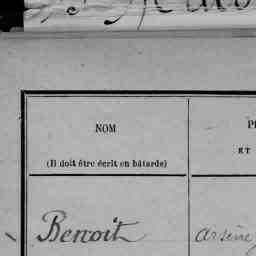 NOM
(Il doit être écrit en bâtarde)
ET
Benoit
arsène